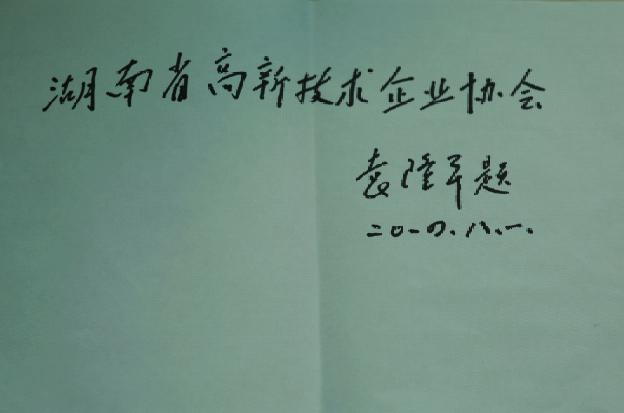 湖南省高新技术企业协会
袁隆平题
二〇一四.八.一.